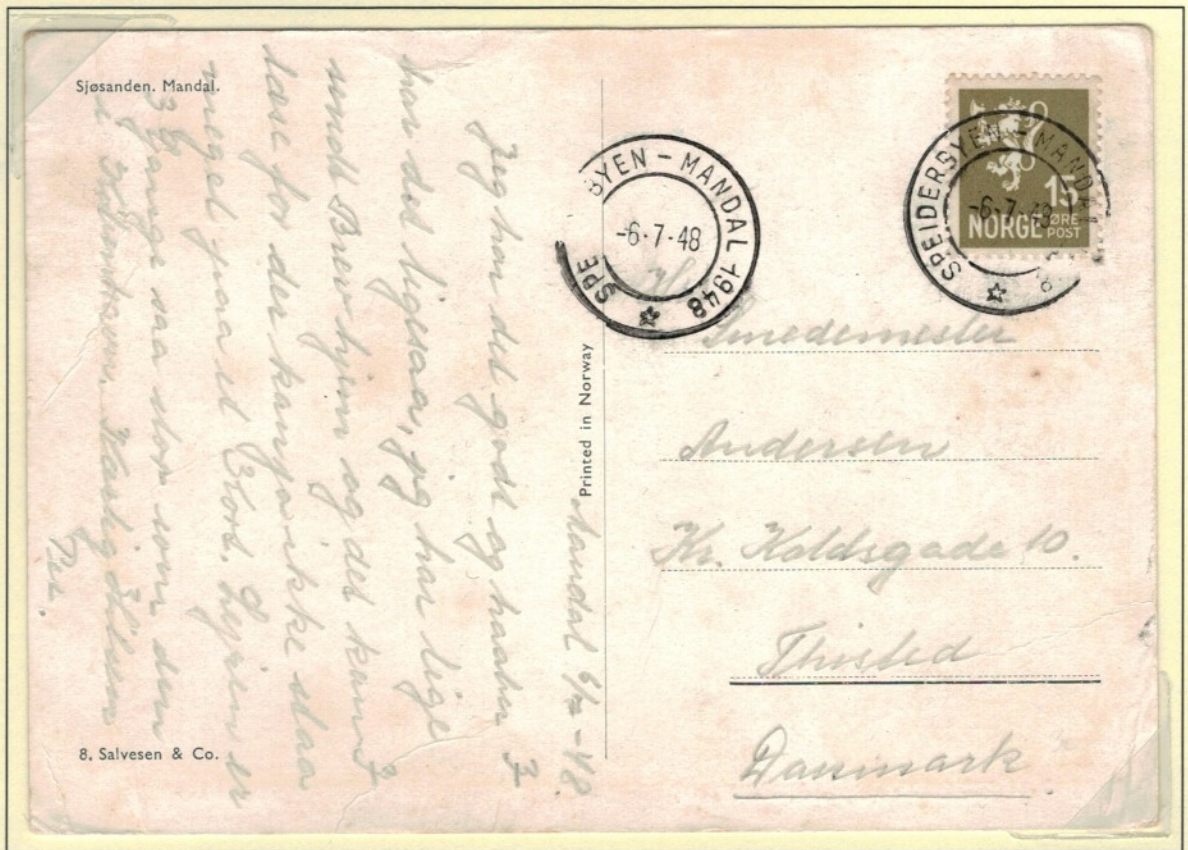 Sjøsanden. Mandal.
Mandal 6/7 - 48.
Jeg har det godt og haaber I
har det ligesaa, jeg har lige
sendt Brev hjem og det kan I
læse for der kan jo ikke staa
meget paa et Kort. Lejren er
3 Gange saa stor som den
i Hilsen
Per.
8. Salvesen & Co.
Printed in Norway
SPE BYEN - MANDAL 1948
-6.-7-48
SPEIDERBYEN - MANDAL
-6.-7-48
15
ØRE
NORGE POST
Smedemester
Andersen
Kr. Koldsgade 10.
Thisted
Danmark